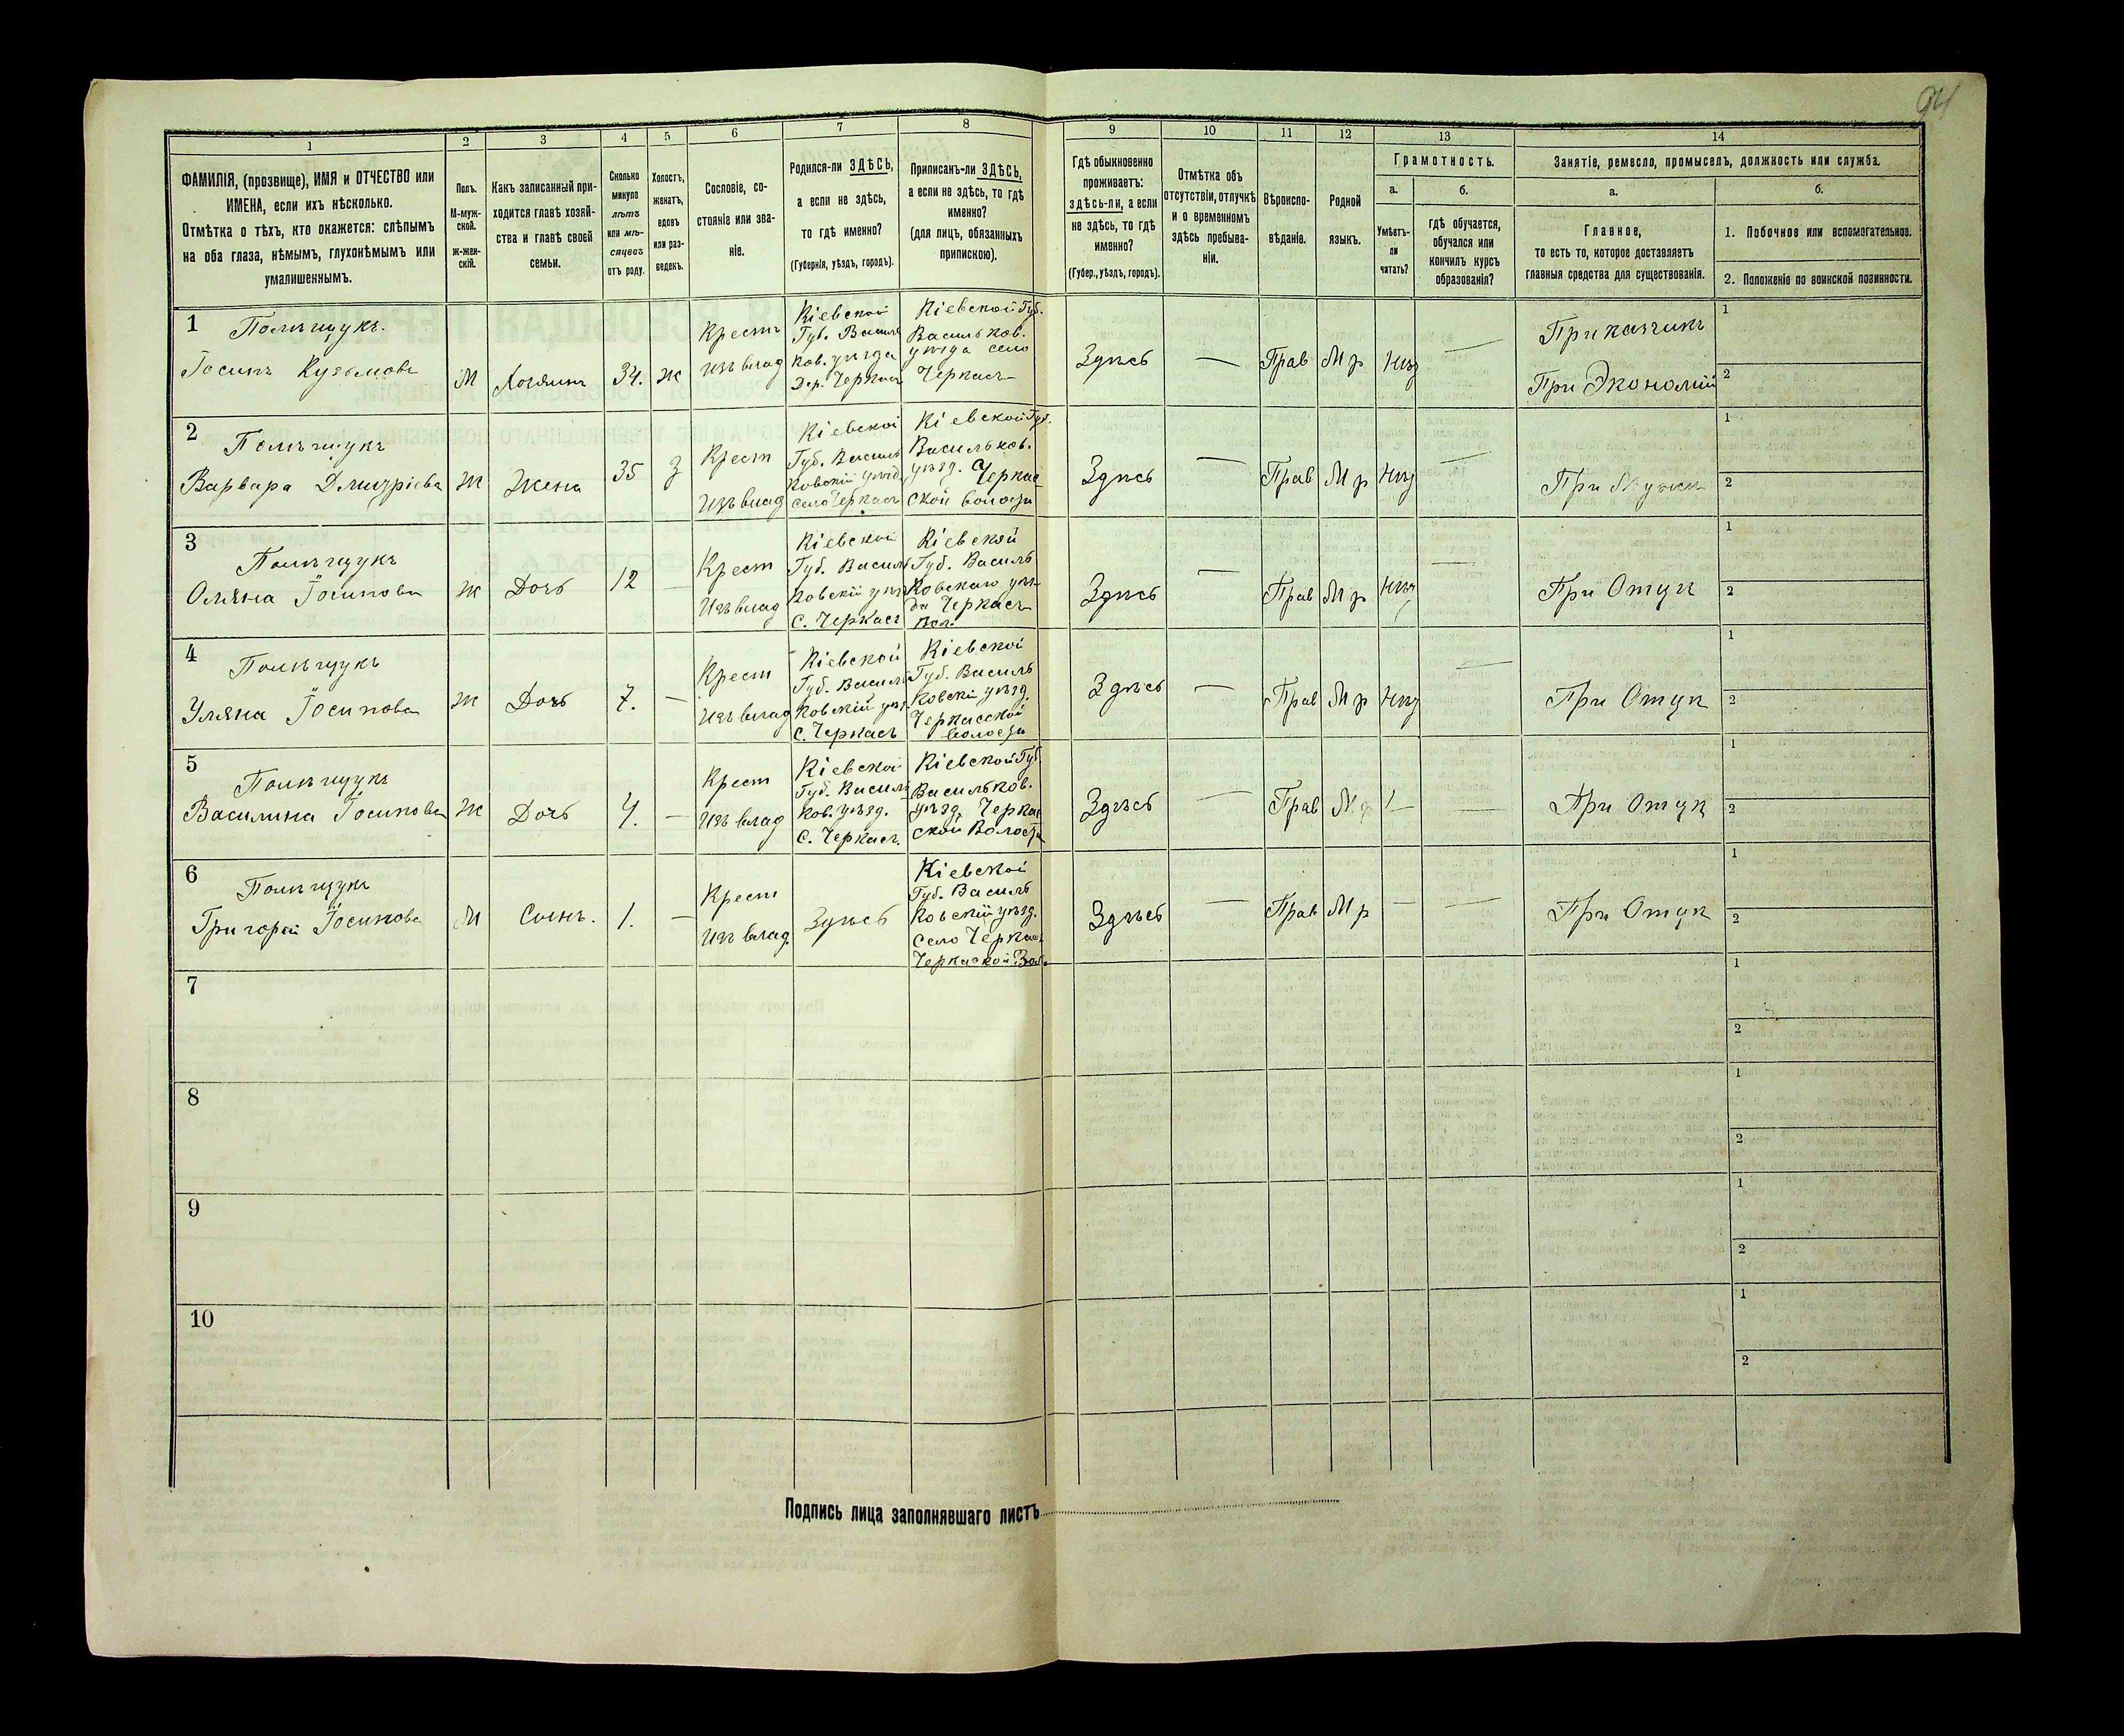 94
1 2 3 4 5 6 7 8 9 10 11 12 13 14
ФАМИЛІЯ, (прозвище), ИМЯ и ОТЧЕСТВО или
ИМЕНА, если ихъ нѣсколько.
Отмѣтка о тѣхъ, кто окажется: слѣпымъ
на оба глаза, нѣмымъ, глухонѣмымъ или
умалишеннымъ.
Полъ.
М-муж-
ской.
ж-жен-
скій.
Какъ записанный при-
ходится главѣ хозяй-
ства и главѣ своей
семьи.
Сколько
минуло
лѣтъ
или мѣ-
сяцевъ
отъ роду.
Холостъ,
женатъ,
вдовъ
или раз-
веденъ.
Сословіе, со-
стояніе или зва-
ніе.
Родился-ли ЗДѢСЬ,
а если не здѣсь,
то гдѣ именно?
(Губернія, уѣздъ, городъ).
Приписанъ-ли ЗДѢСЬ,
а если не здѣсь, то гдѣ
именно?
(для лицъ, обязанныхъ
припискою).
Гдѣ обыкновенно
проживаетъ:
здѣсь-ли, а если
не здѣсь, то гдѣ
именно?
(Губер., уѣздъ, городъ).
Отмѣтка объ
отсутствіи, отлучкѣ
и о временномъ
здѣсь пребыва-
ніи.
Вѣроиспо-
вѣданіе.
Родной
языкъ.
Грамотность.
а.
Умѣетъ-
ли
читать?
б.
Гдѣ обучается,
обучался или
кончилъ курсъ
образованія?
Занятіе, ремесло, промыселъ, должность или служба.
а.
Главное,
то есть то, которое доставляетъ
главныя средства для существованія.
б.
1. Побочное или вспомогательное.
2. Положеніе по воинской повинности.
1
Полѣщукъ.
Іосипъ Кузьмовъ
М
Хозяинъ
34.
ж
Крест
изъ влад
Кіевской
Губ. Василь
ков. уѣзда
Дер. Черкасъ
Кіевской Губ.
Васильков.
уѣзда село
Черкасъ
Здѣсь
—
Прав
М р
Нѣт
—
Приказчикъ
При Экономіи
1
2
2
Полѣщукъ
Варвара Дмитріева
Ж
Жена
35
З
Крест
Изъ влад
Кіевской
Губ. Василь
ковскій уѣзд
село Черкасъ
Кіевской Губ.
Васильков.
уѣзд. Черкас
ской волости
Здѣсь
—
Прав
М р
Нѣт
—
При Мужи
1
2
3
Полѣщукъ
Оляна Іосипова
Ж
Дочь
12
—
Крест
Изъ влад
Кіевской
Губ. Василь
ковскій уѣз
С. Черкасъ
Кіевской
Губ. Василь
ковскаго уѣз
да Черкасъ
Вол.
Здѣсь
—
Прав
М р
Нѣт
—
При Отцѣ
1
2
4
Полѣщукъ
Уляна Іосипова
Ж
Дочь
7.
—
Крест
Изъ влад
Кіевской
Губ. Василь
ковскій уѣз
С. Черкасъ
Кіевской
Губ. Василь
ковскі уѣзд.
Черкасской
волости
Здѣсь
—
Прав
М р
Нѣт
—
При Отцѣ
1
2
5
Полѣщукъ
Василина Іосипова
Ж
Дочь
4.
—
Крест
Изъ влад
Кіевской
Губ. Василь
ков. уѣзд.
С. Черкасъ.
Кіевской Губ
Васильков.
уѣзд. Черкас
ской Волости
Здѣсь
—
Прав
М р
—
—
При Отцѣ
1
2
6
Полѣщукъ
Григорій Іосиповъ
М
Сынъ.
1.
—
Крест
Изъ влад.
Здѣсь
Кіевской
Губ. Василь
ковскій уѣзд.
Село Черкас
Черкаской Вол.
Здѣсь
—
Прав
М р
—
—
При Отцѣ
1
2
7
1
2
8
1
2
9
1
2
10
1
2
Подпись лица заполнявшаго листъ